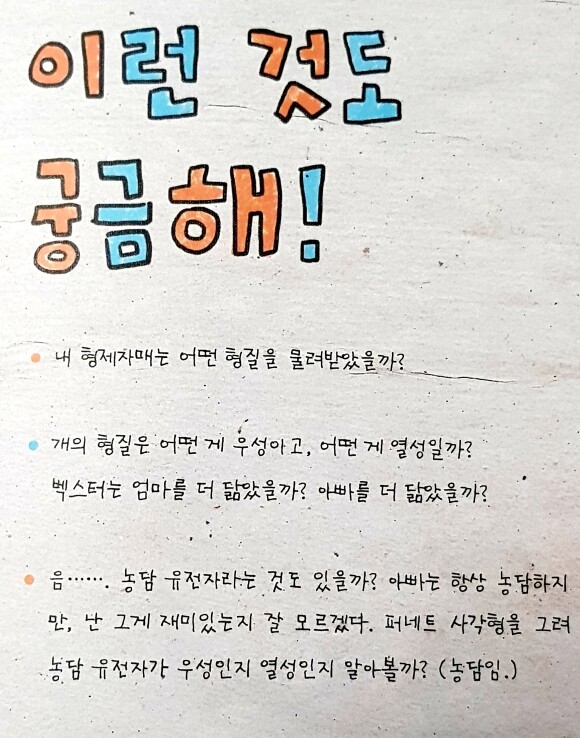 이런 것도
궁금해!
• 내 형제자매는 어떤 형질을 물려받았을까?
• 개의 형질은 어떤 게 우성이고, 어떤 게 열성일까?
벡스터는 엄마를 더 닮았을까? 아빠를 더 닮았을까?
• 음……. 농담 유전자라는 것도 있을까? 아빠는 항상 농담하지
만, 난 그게 재미있는지 잘 모르겠다. 퍼네트 사각형을 그려
농담 유전자가 우성인지 열성인지 알아볼까? (농담임.)